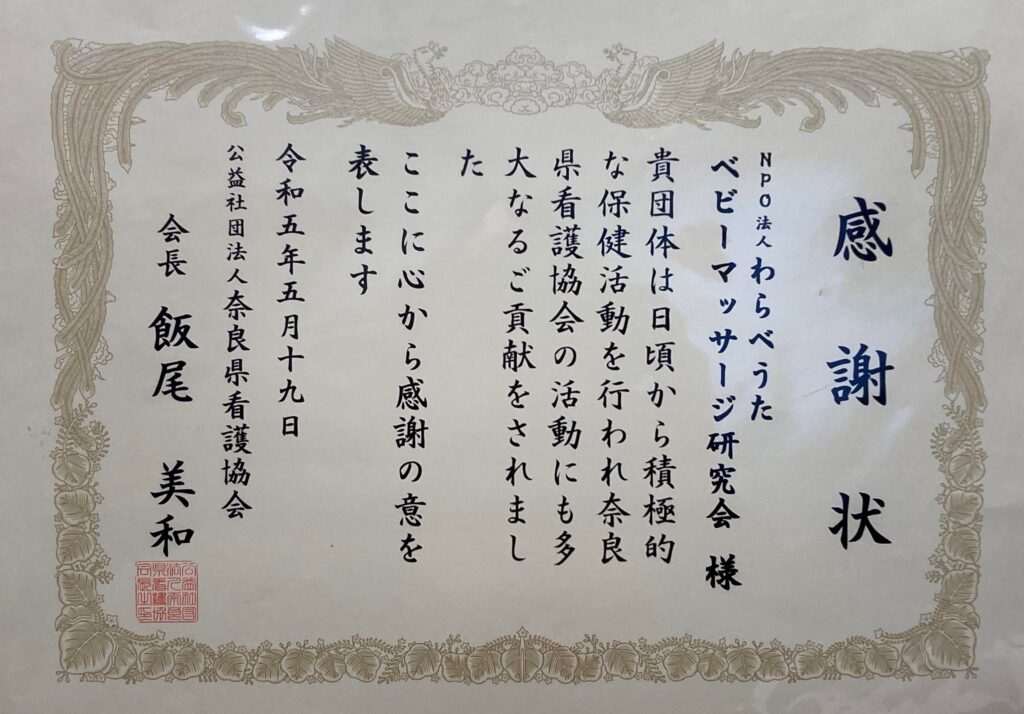 感謝状
NPO法人わらべうた
ベビーマッサージ研究会 様
貴団体は日頃から積極的
な保健活動を行われ奈良
県看護協会の活動にも多
大なるご貢献をされまし
た
ここに心から感謝の意を
表します
令和五年五月十九日
公益社団法人奈良県看護協会
会長 飯尾 美和